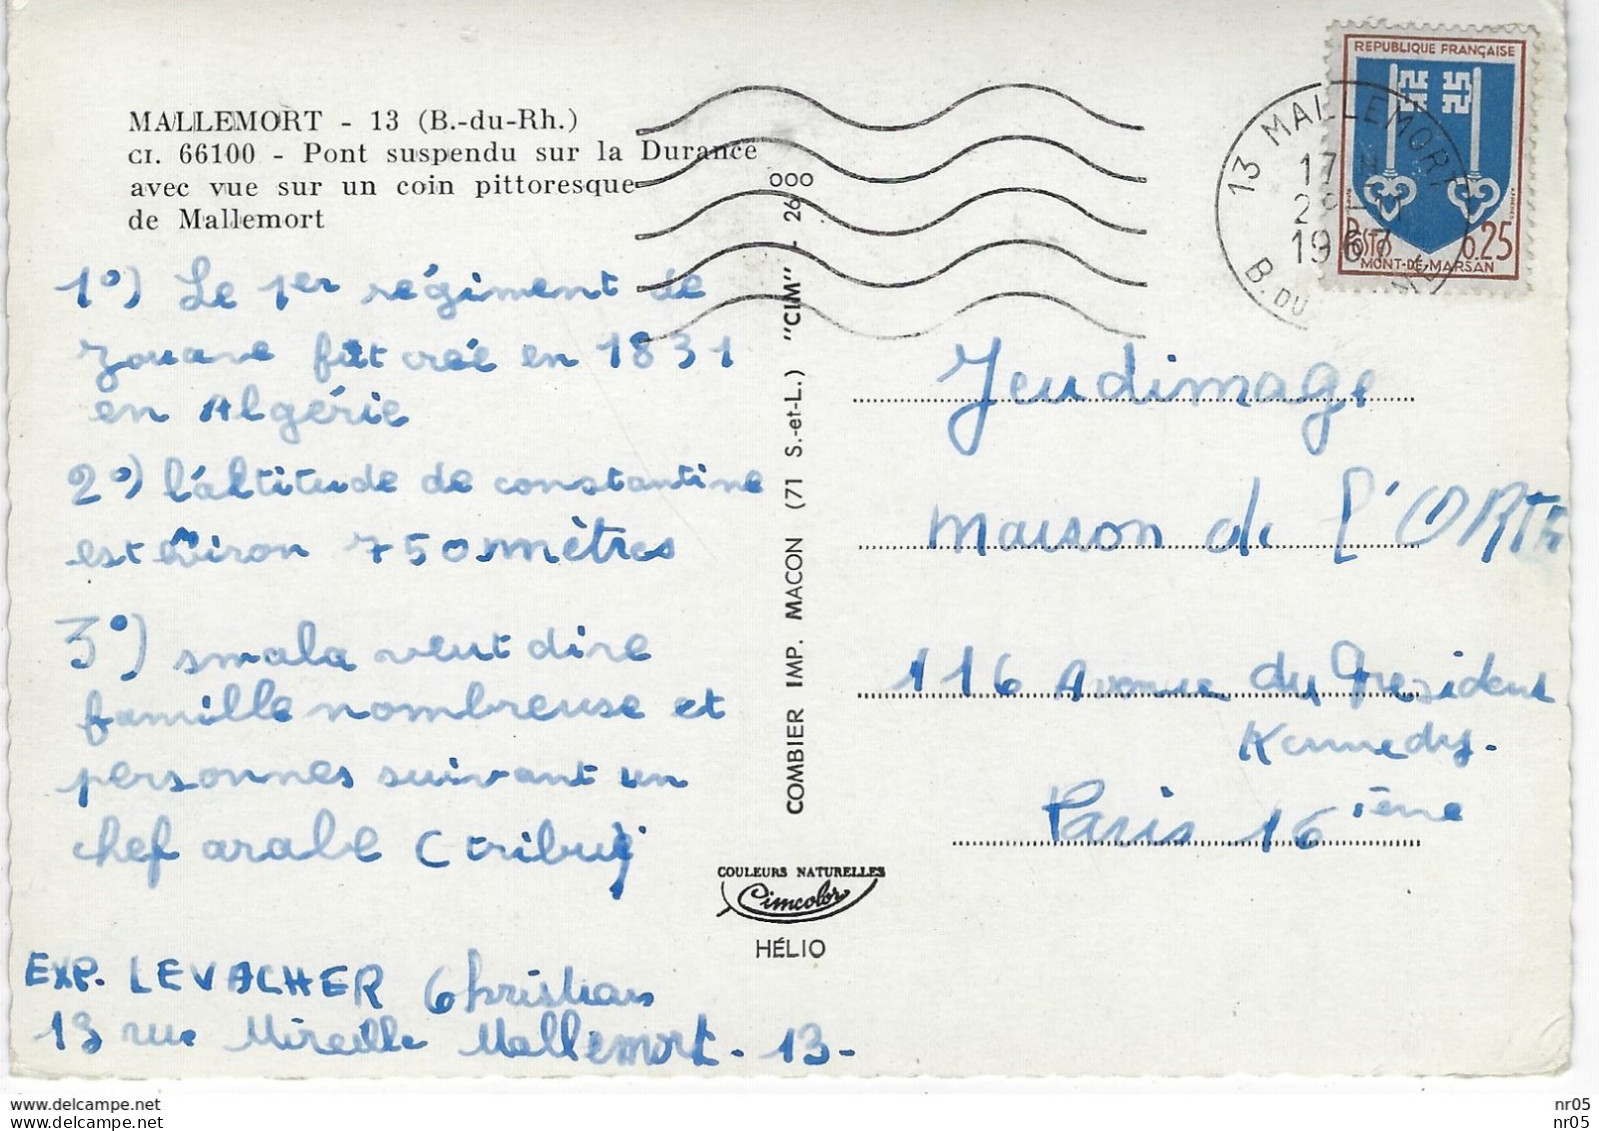 MALLEMORT - 13 (B.-du-Rh.)
CI. 66100 - Pont suspendu sur la Durance
avec vue sur un coin pittoresque
de Mallemort
1º) Le 1er régiment de
zouave fut créé en 1831
en Algérie
2º) l'altitude de constantine
est environ 750 mètres
3º) smala veut dire
famille nombreuse et
personnes suivant un
chef arabe (tribu)
EXP. LEVACHER Christian
13 rue Mireille Mallemort - 13 -
COMBIER IMP. MACON (71 S.-et-L.) "CIM" - 26 000
COULEURS NATURELLES
Cimcolor
HÉLIO
REPUBLIQUE FRANÇAISE
Postes 0.25
MONT-DE-MARSAN
13 MALLEMORT
17 H
2
1967
B. DU
Jeudimage
maison de l'ORTF
116 Avenue du President
Kennedy.
Paris 16 ième
delcampe.net
delcampe.net
nr05
nr05